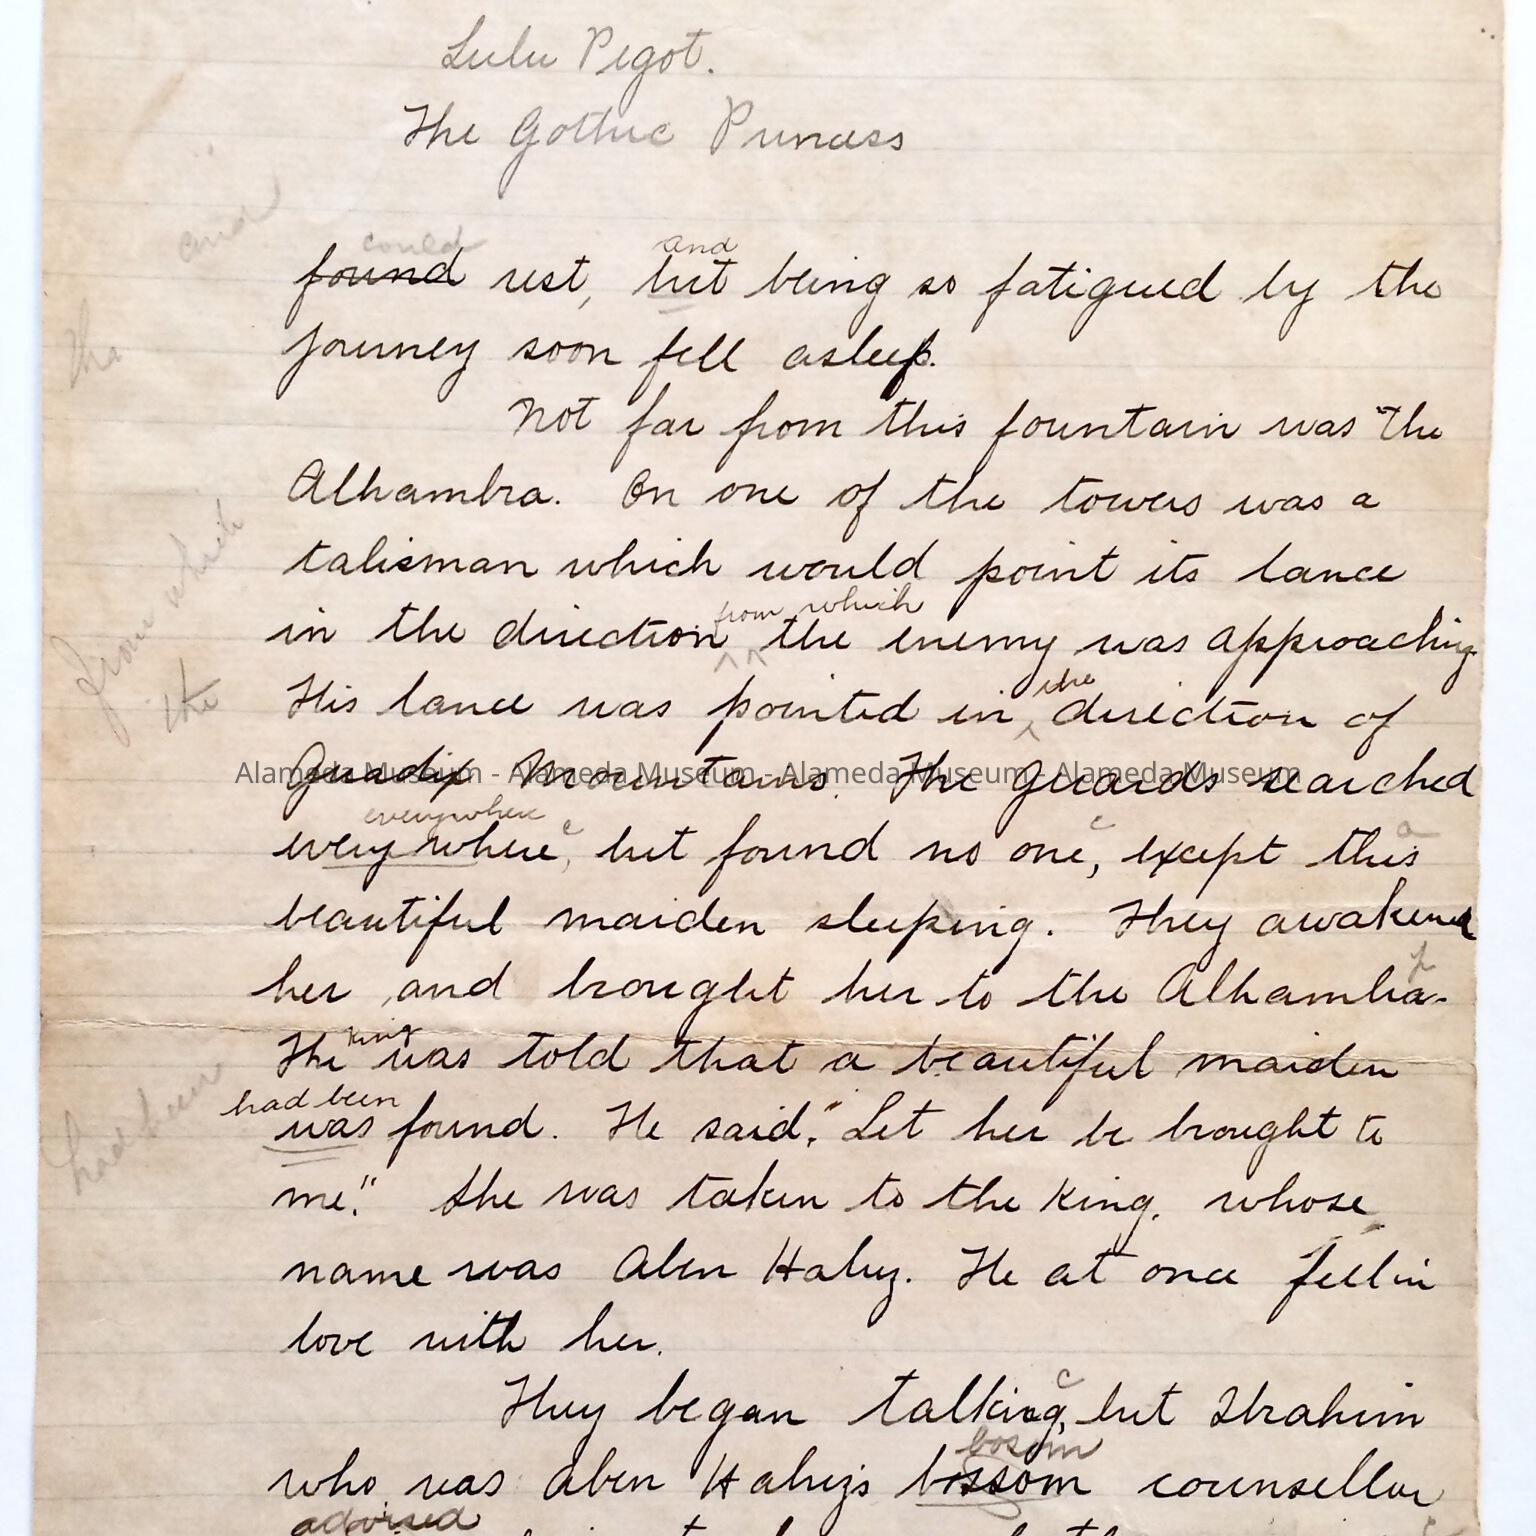 Lulu Pegot.
The Gothic Princess
and
could
and
found rest, but being so fatigued by the
the
journey soon fell asleep.
Not far from this fountain was the
Alhambra. On one of the towers was a
talisman which would point its lance
from which
in the direction the enemy was approaching
from which
the
the
His lance was pointed in direction of
Guadix Mountains. The Guards searched
Alameda Museum - Alameda Museum - Alameda Museum - Alameda Museum
everywhere c c a
every where, but found no one, except this
beautiful maiden sleeping. They awakened
her and brought her to the Alhambra.
king
The was told that a beautiful maiden
had been
had been
was found. He said, "Let her be brought to
me." She was taken to the King, whose
name was Aben Habuz. He at once fell in
love with her.
c
They began talking, but Ibrahim
bosom
who was Aben Habuz's bossom counsellor
advised